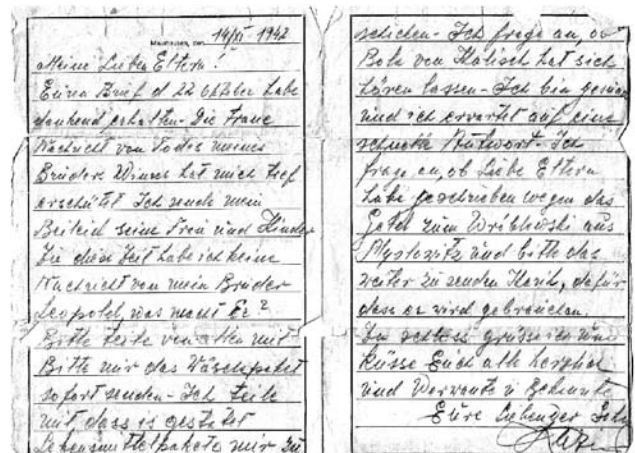 Mauthausen, den 14/XI 1942
Meine Lieben Eltern!
Euren Brief d 22 Oktober habe
dankend erhalten - Die Traue
Nachricht von Todes meines
Bruders hat mich tief
erschütert Ich sende mein
Beileid seine Frau und Kinder
Zu dien Zeit habe ich keine
Nachricht von mein Bruder
Leopold, was macht Er?
Bitte teile von allen mit
Bitte mir das Wäschpaket
sofort senden - Ich teile
mit dass es gestatet
Lebensmittelpakete mir zu
schicken - Ich frage an, ob
Bolk von Kalisch hat sich
hören lassen - Ich bin gesund
und ich erwartet auf eine
schnelle Antwort - Ich
frage an, ob Liebe Eltern
habe geschrieben wegen das
Geld zum aus
und bitte das
weiter zu senden dafür
dass er wird gebrauchen.
Zu schless grüsse ich und
küsse Euch alle herzlich
und Verwante u Bekannte
Eure Liebenger